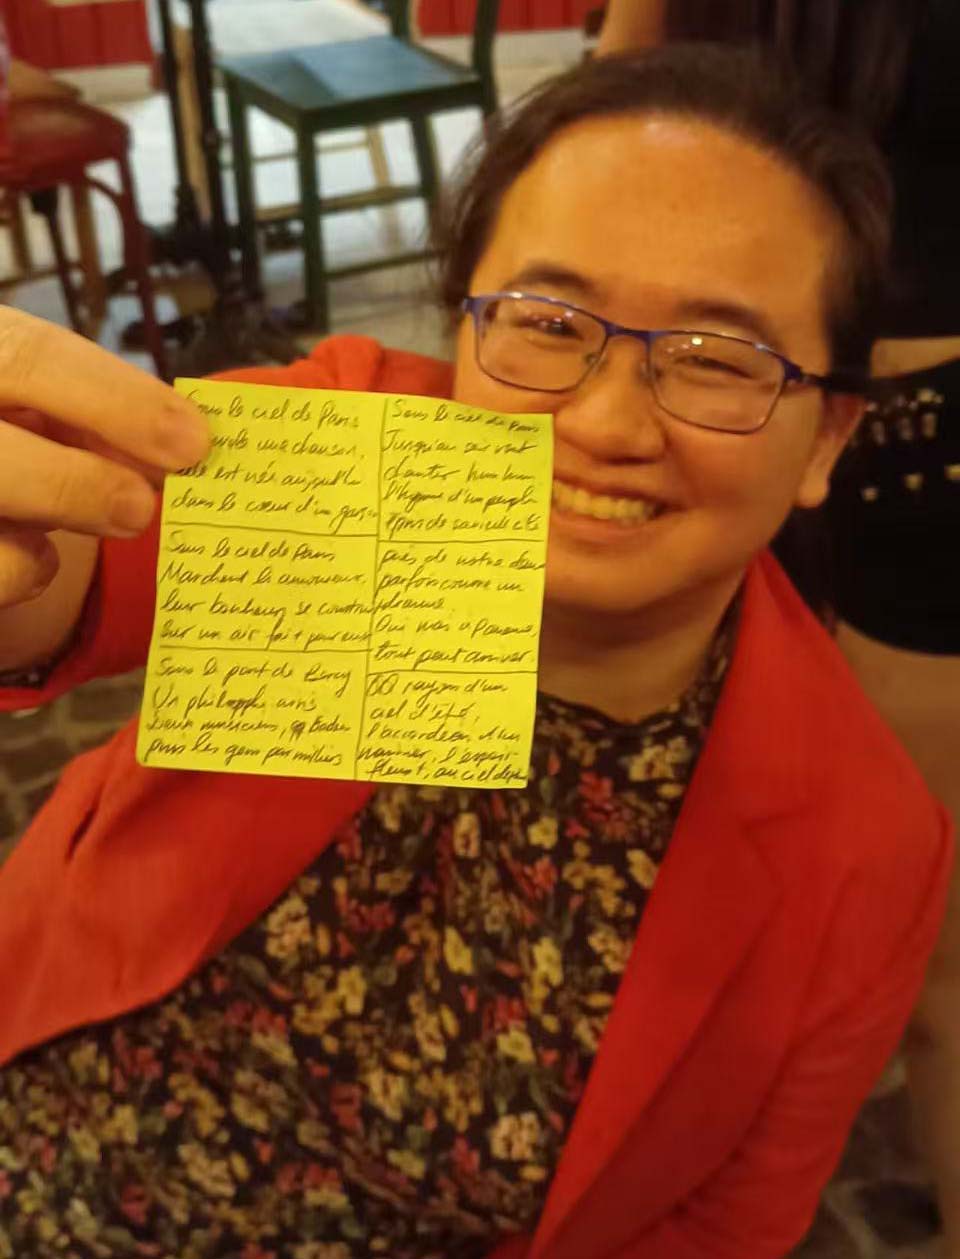 Sous le ciel de Paris
une chanson,
elle est née aujourd'hui
dans le cœur d'un garçon
Sous le ciel de Paris
Marchent les amoureux,
leur bonheur se construit
sur un air fait pour eux
Sous le pont de Bercy
Un philosophe assis
Deux musiciens,
puis les gens par milliers
Sous le ciel de Paris
Jusqu'au soir vont
chanter hum hum
l'hymne d'un peuple
épris de sa vieille cité
près de notre dame
parfois couve un
drame.
Oui mais à Paname,
tout peut arriver.
rayons d'un
ciel d'été,
l'accordéon d'un
marinier, l'espoir
fleurit, au ciel de